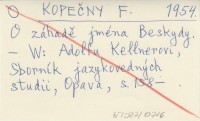 O KOPEČNÝ F. 1954.
O záhadě jména Beskydy.
– W: Adolfu Kellnerovi,
Sborník jazykovědných
studií, Opava, s. 158–